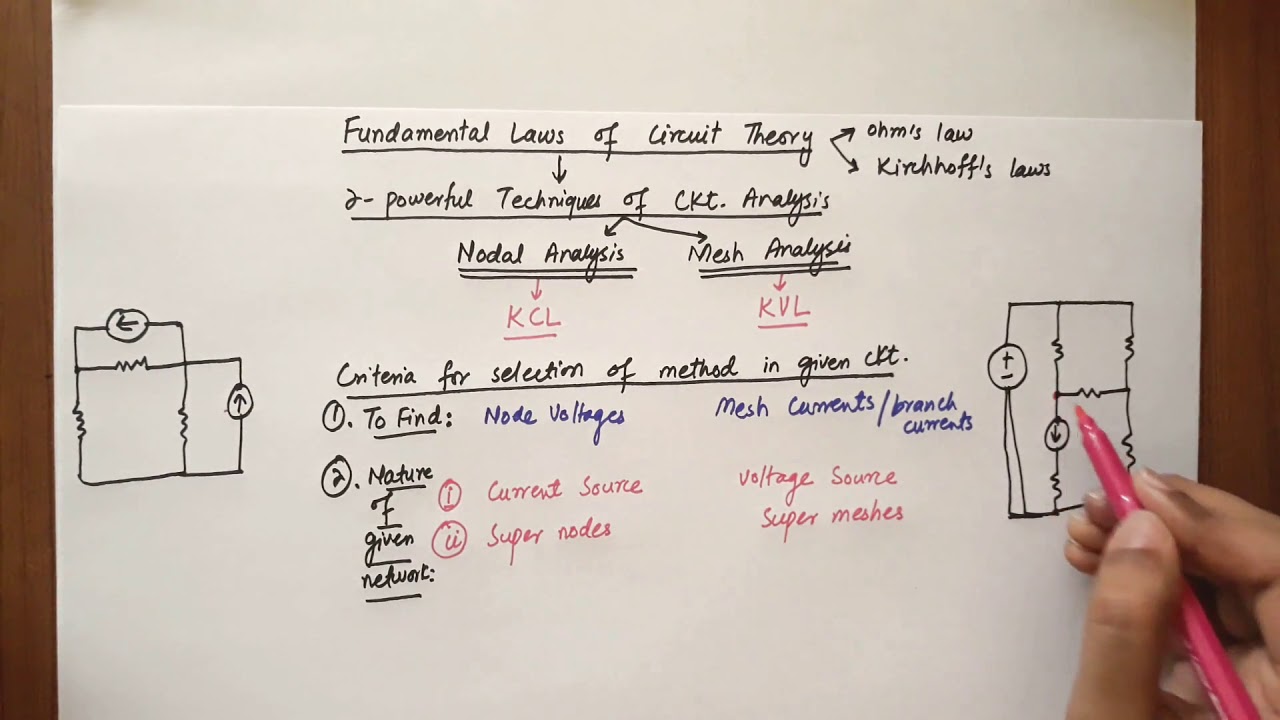 Fundamental Laws of Circuit Theory
ohm's law
Kirchhoff's laws
2- powerful Techniques of CKt. Analysis
Nodal Analysis
Mesh Analysis
KCL
KVL
Criteria for selection of method in given CKt.
1. To Find: Node Voltages
Mesh Currents/branch currents
2. Nature of given network:
i Current Source
Voltage Source
ii Super nodes
Super meshes